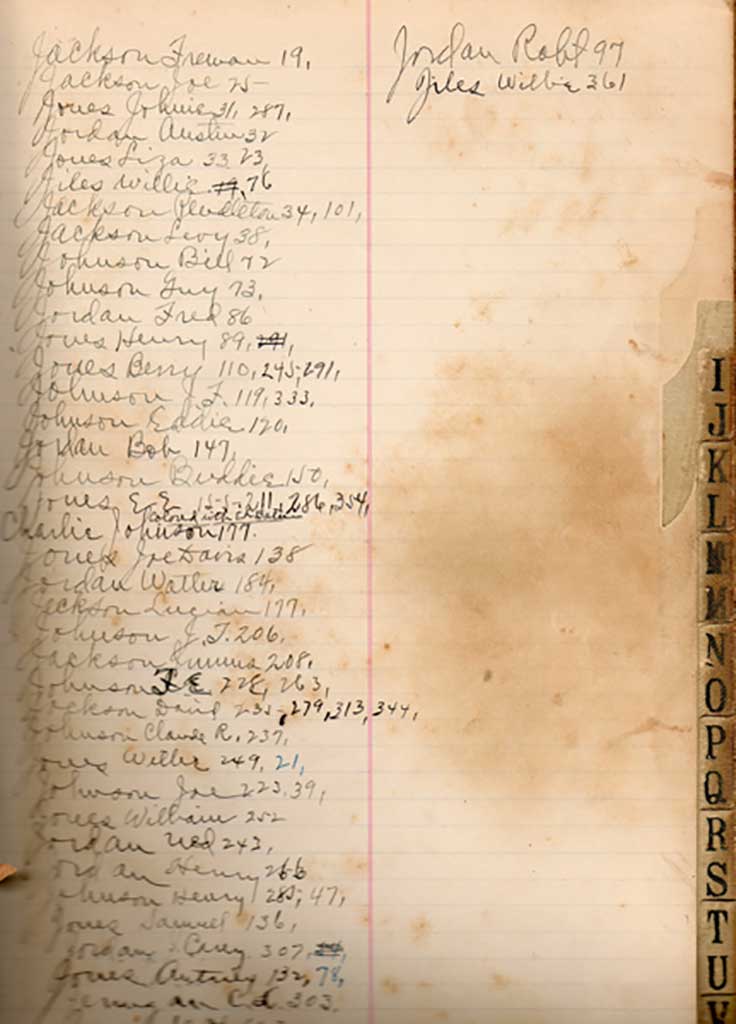 Jackson Freman 19,
Jackson Joe 25
Jones Johnie 31, 287,
Jordan Austin 32
Jones Liza 33 23,
Jiles Willie 76
Jackson Pendleton 34, 101,
Jackson Levy 38,
Johnson Bill 72
Johnson Guy 73,
Jordan Fred 86
Jones Henry 89, 291,
Jones Berry 110, 245, 291,
Johnson J. F. 119, 333,
Johnson Eddie 120,
Jordan Bob 147,
Johnson Buddie 150,
Jones E. E. 155, 211, 286, 354,
Colored with
Charlie Johnson 177.
Jones Joe Davis 138
Jordan Walter 184,
Jackson 177,
Johnson J. T. 206,
Jackson 208,
Johnson F E 228, 263,
Jackson David 235, 279, 313, 344,
Johnson Claude R. 237,
Jones Willie 249, 21,
Johnson Joe 223, 39,
Jones William 252
Jordan Ned 243,
Jordan Henry 266
Johnson Henry 285, 47,
Jones Samuel 136,
Jordan Carey 307,
Jones Antney 132, 78,
C. L. 303.
Jordan Robt 97
Jiles Willie 361
I
J
K
L
M
N
O
P
Q
R
S
T
U
V